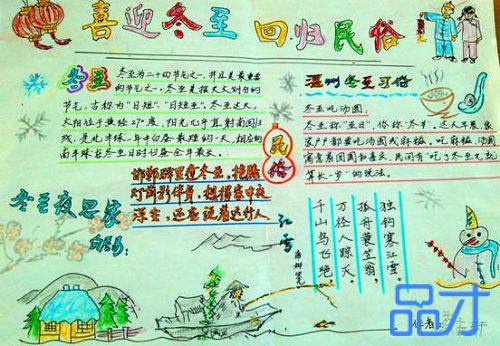 喜迎冬至 回归民俗
冬至
冬至为二十四节气之一,并且是最重要
的节气之一.冬至是按天文划分的
节气,古称为"日短"、"日短至".冬至这天,
太阳位于黄经270度,阳光几乎直射南回归
线,是北半球一年中白昼最短的一天,相应的
南半球在冬至日时白昼全年最长.
冬至夜思家
白居易:
邯郸驿里逢冬至,抱膝
灯前影伴身.想得家中夜
深坐,还应说着远行人.
民俗
温州冬至习俗
冬至吃汤圆.
冬至称"亚日",俗称"冬节",这天早晨,家
家户户都要吃汤圆或麻糍.吃麻糍、汤圆
寓意着团圆和喜庆,民间有"吃了冬至丸就
算长一岁"的说法.
江雪
唐柳宗元
千山鸟飞绝,
万径人踪灭.
孤舟蓑笠翁,
独钓寒江雪.
品才